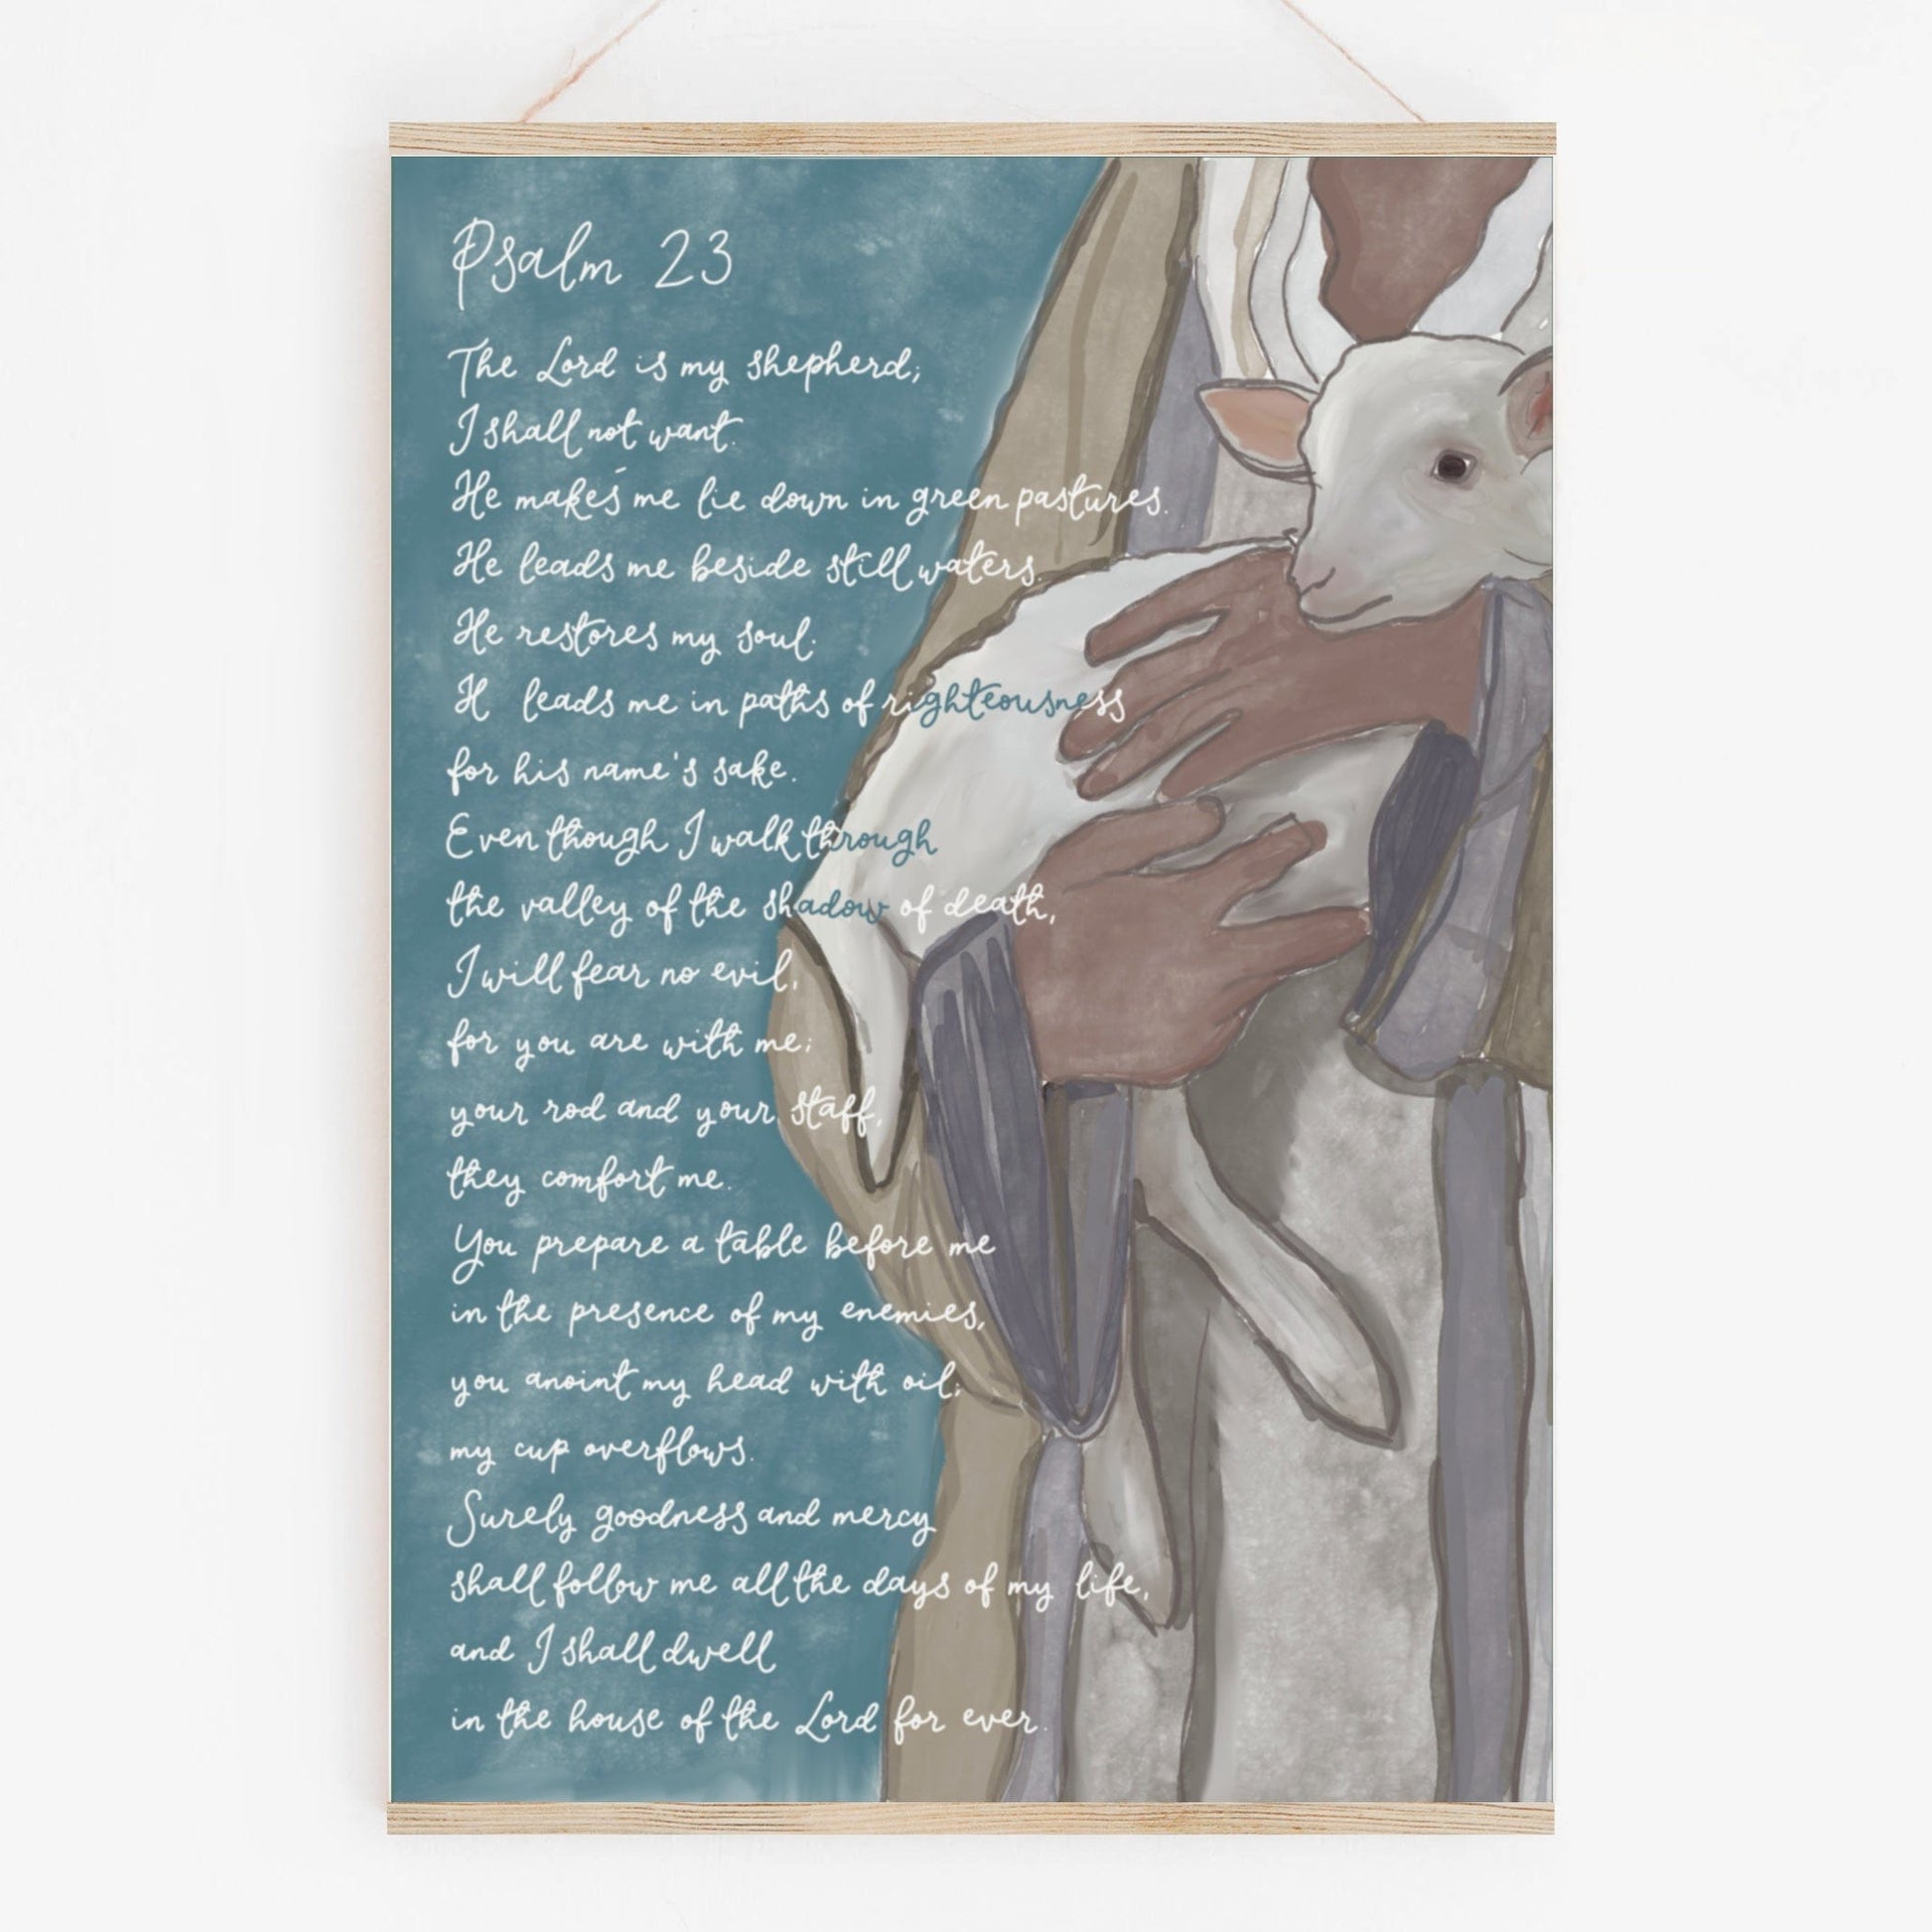 Psalm 23
The Lord is my shepherd;
I shall not want.
He makes me lie down in green pastures.
He leads me beside still waters.
He restores my soul.
H leads me in paths of righteousness
for his name's sake.
Even though I walk through
the valley of the shadow of death,
I will fear no evil,
for you are with me;
your rod and your staff,
they comfort me.
You prepare a table before me
in the presence of my enemies,
you anoint my head with oil;
my cup overflows.
Surely goodness and mercy
shall follow me all the days of my life,
and I shall dwell
in the house of the Lord for ever.